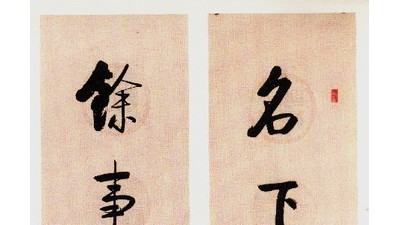 名下
餘事